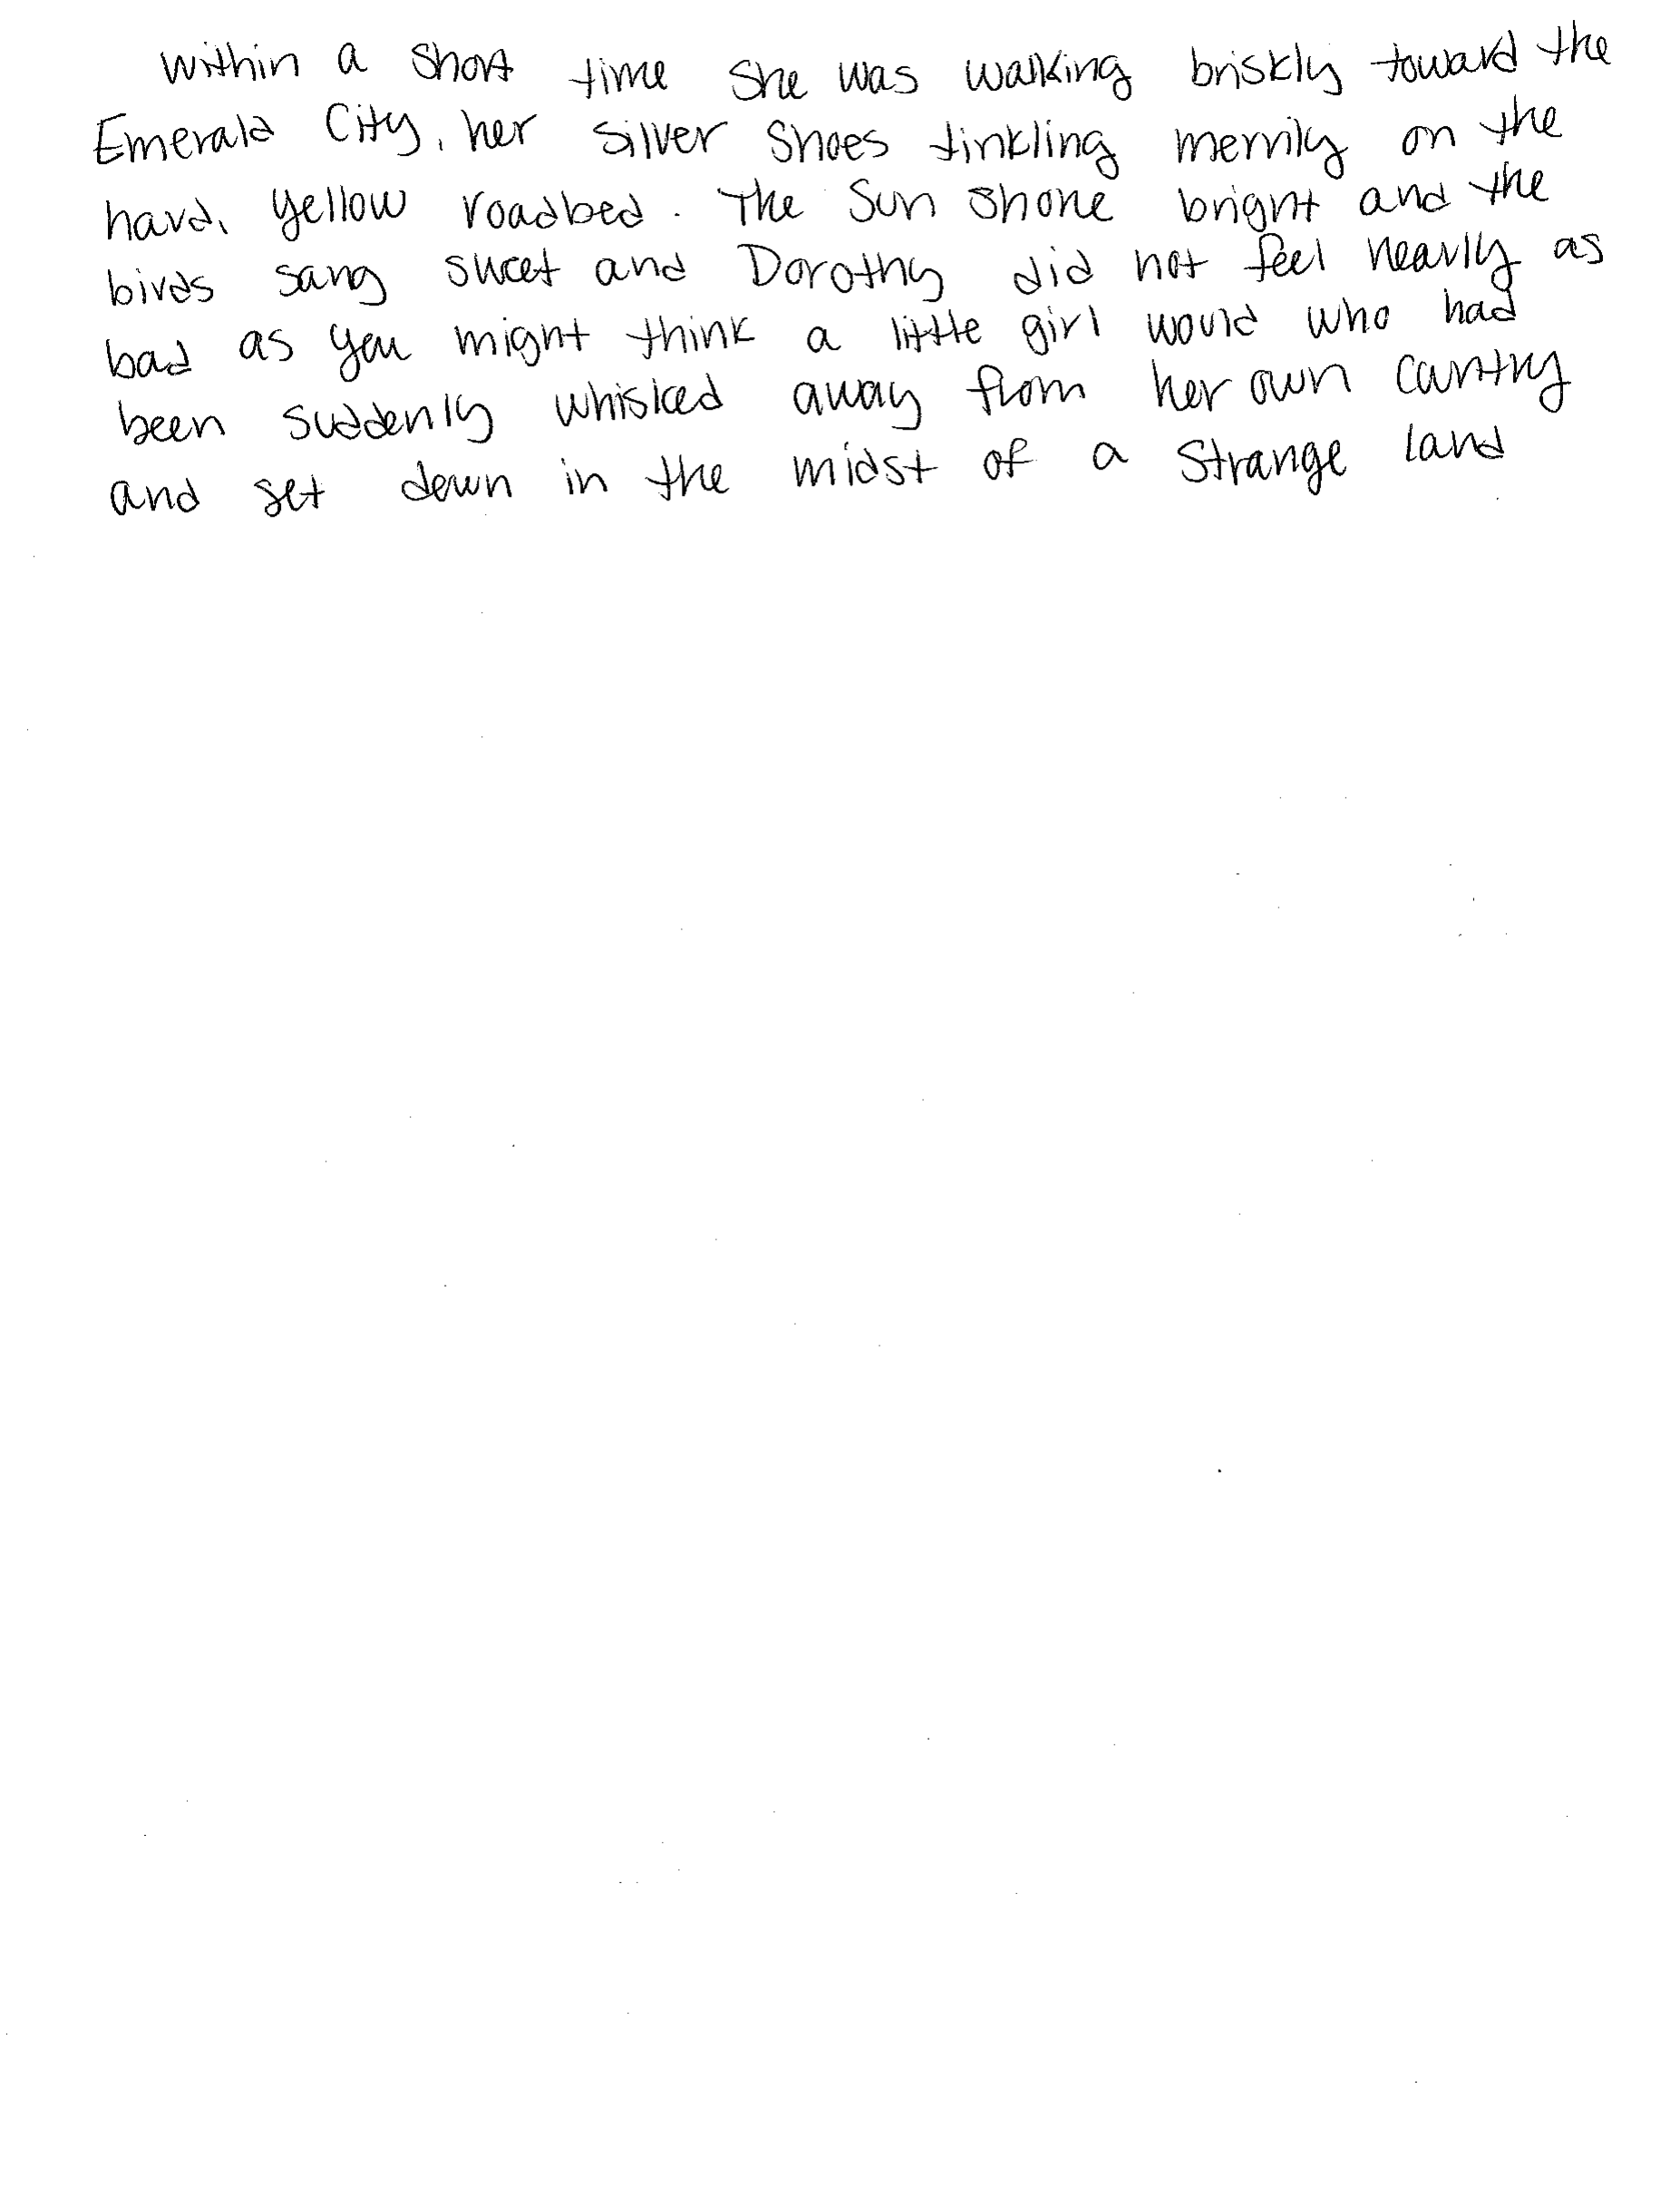 Within a short time she was walking briskly toward the
Emerald City, her Silver Shoes tinkling merrily on the
hard, yellow roadbed. The sun shone bright and the
birds sang sweet and Dorothy did not feel nearly as
bad as you might think a little girl would who had
been suddenly whisked away from her own country
and set down in the midst of a strange land